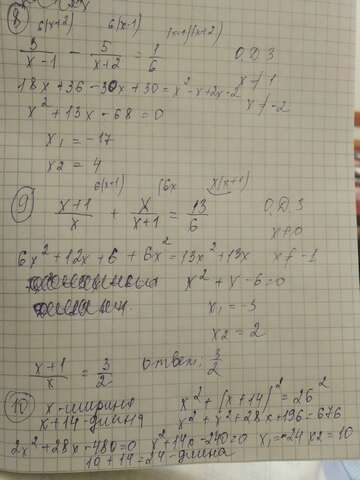 8 6(x+2) 6(x-1) (x-1)(x+2)
3/(x-1) - 5/(x+2) = 1/6 О.Д.З
18x+36-30x+30=x²-x+2x-2 x≠1
x²+13x-68=0 x≠-2
x1=-17
x2=4
6(x+1) 6x x(x+1)
9 (x+1)/x + x/(x+1) = 13/6 О.Д.З
x≠0
6x²+12x+6+6x²=13x²+13x x≠-1
x²+x-6=0
x1=-3
x2=2
(x+1)/x = 3/2 ответ: 3/2
10 x-ширина x²+(x+14)²=26²
x+14-длина x²+x²+28x+196=676
2x²+28x-480=0 x²+14x-240=0 x1=-24 x2=10
10+14=24-длина